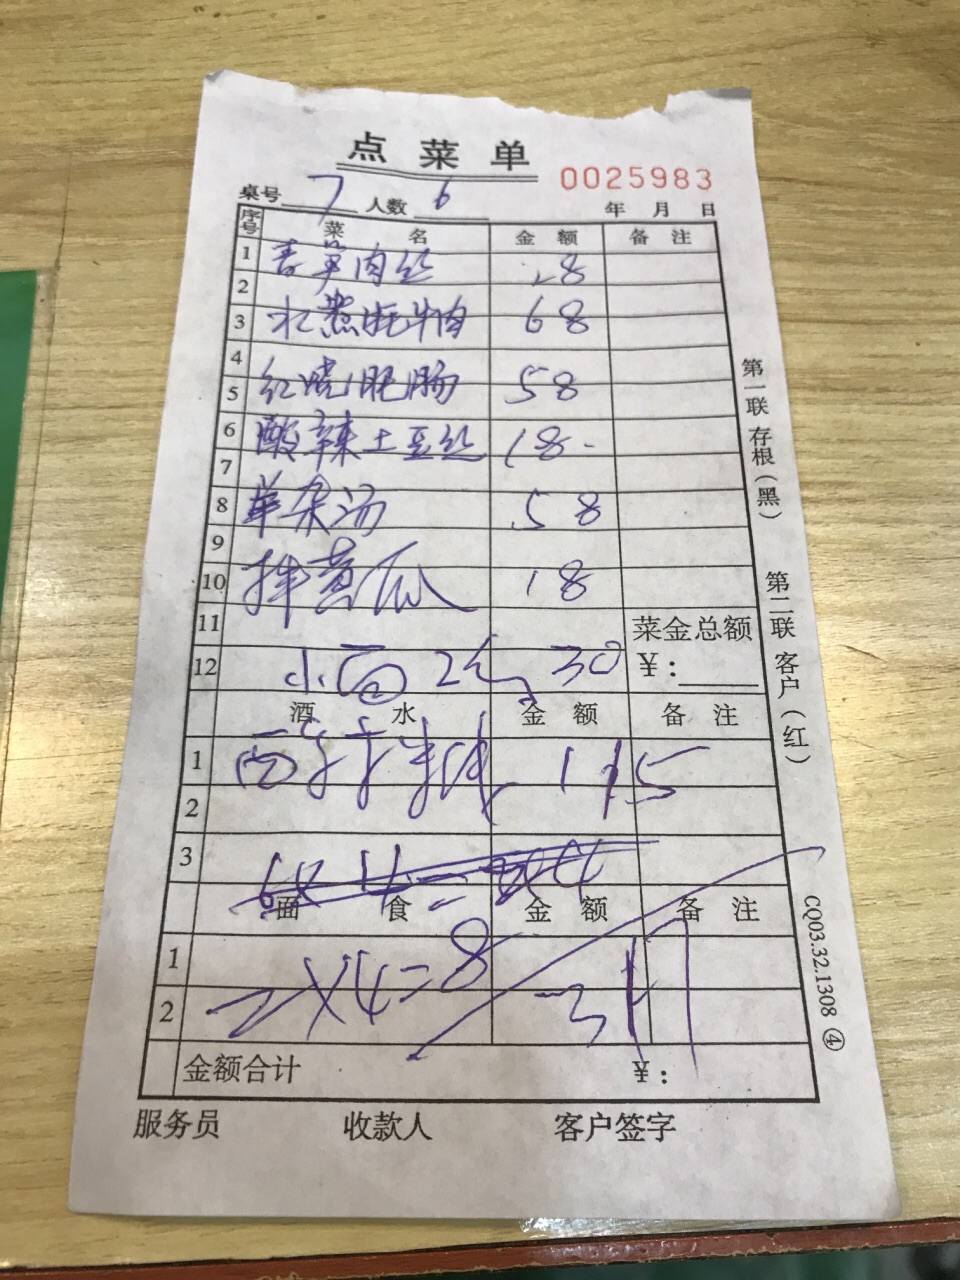 点菜单
0025983
桌号 7 人数 6 年 月 日
序号 菜 名 金 额 备 注
1 春笋肉丝 28
2
3 水煮牦牛肉 68
4
5 红烧肥肠 58
6 酸辣土豆丝 18
7
8 羊杂汤 58
9
10 拌黄瓜 18
11 菜金总额
12 小面 2个 30 ¥:
酒 水 金 额 备 注
1 115
2
3
面 食 金 额 备 注
1 2×4=8
2 317
金额合计 ¥:
服务员 收款人 客户签字
第一联 存根(黑) 第二联 客户(红)
CQ03.32.1308 ④